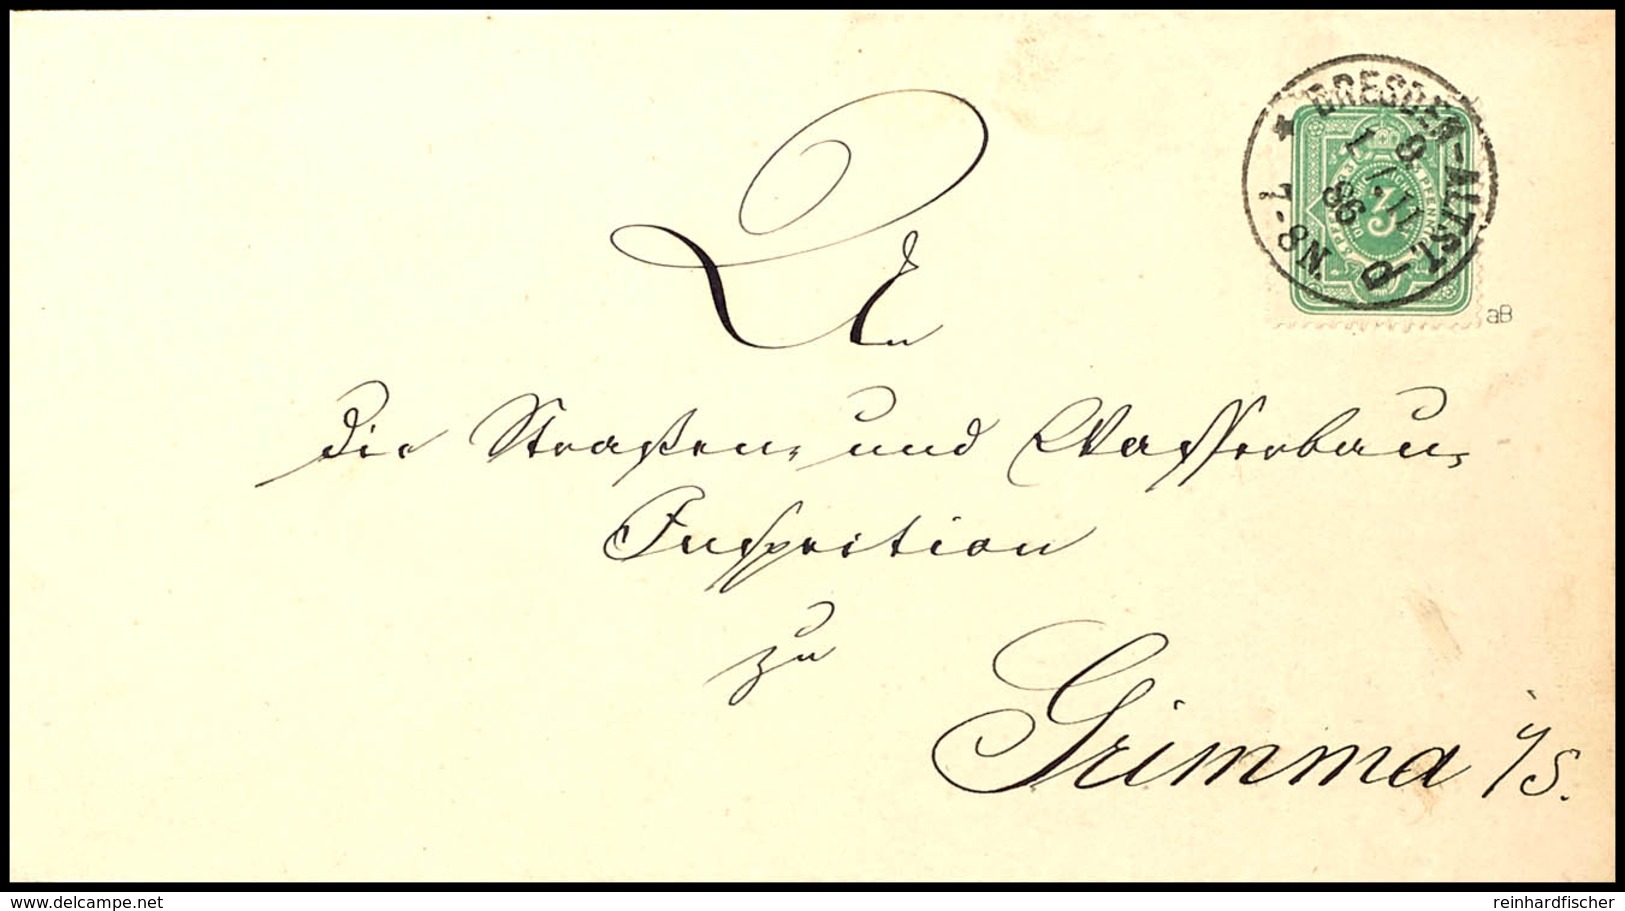 DRESDEN-ALTST.-D
9
7 II
86
N8-1
3
aB
An
die Straßen- und Wasserbau-
Inspection
zu
Grimma i/S.
www.delcampe.net
reinhardfischer